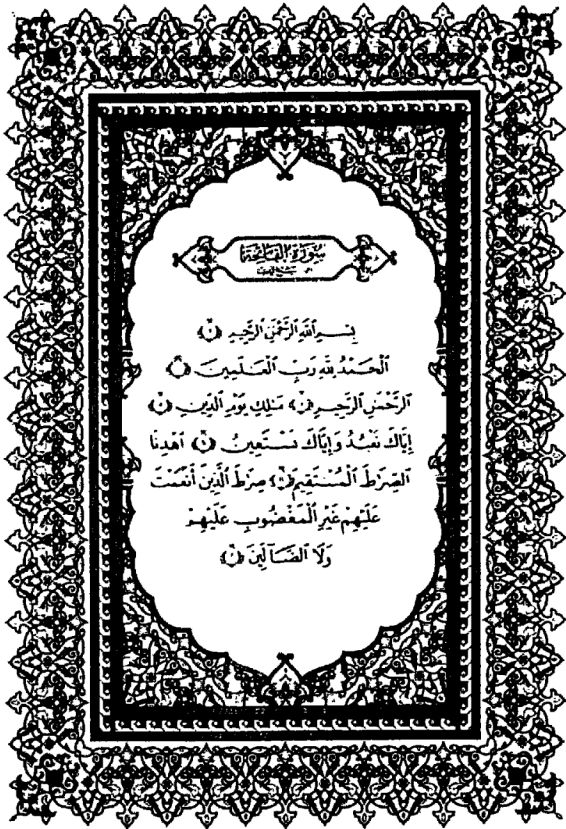 سُورَةُ الفَاتِحَةِ
بِسْمِ ٱللَّهِ ٱلرَّحْمَٰنِ ٱلرَّحِيمِ
ٱلْحَمْدُ لِلَّهِ رَبِّ ٱلْعَٰلَمِينَ
ٱلرَّحْمَٰنِ ٱلرَّحِيمِ مَٰلِكِ يَوْمِ ٱلدِّينِ
إِيَّاكَ نَعْبُدُ وَإِيَّاكَ نَسْتَعِينُ ٱهْدِنَا
ٱلصِّرَٰطَ ٱلْمُسْتَقِيمَ صِرَٰطَ ٱلَّذِينَ أَنْعَمْتَ
عَلَيْهِمْ غَيْرِ ٱلْمَغْضُوبِ عَلَيْهِمْ
وَلَا ٱلضَّآلِّينَ